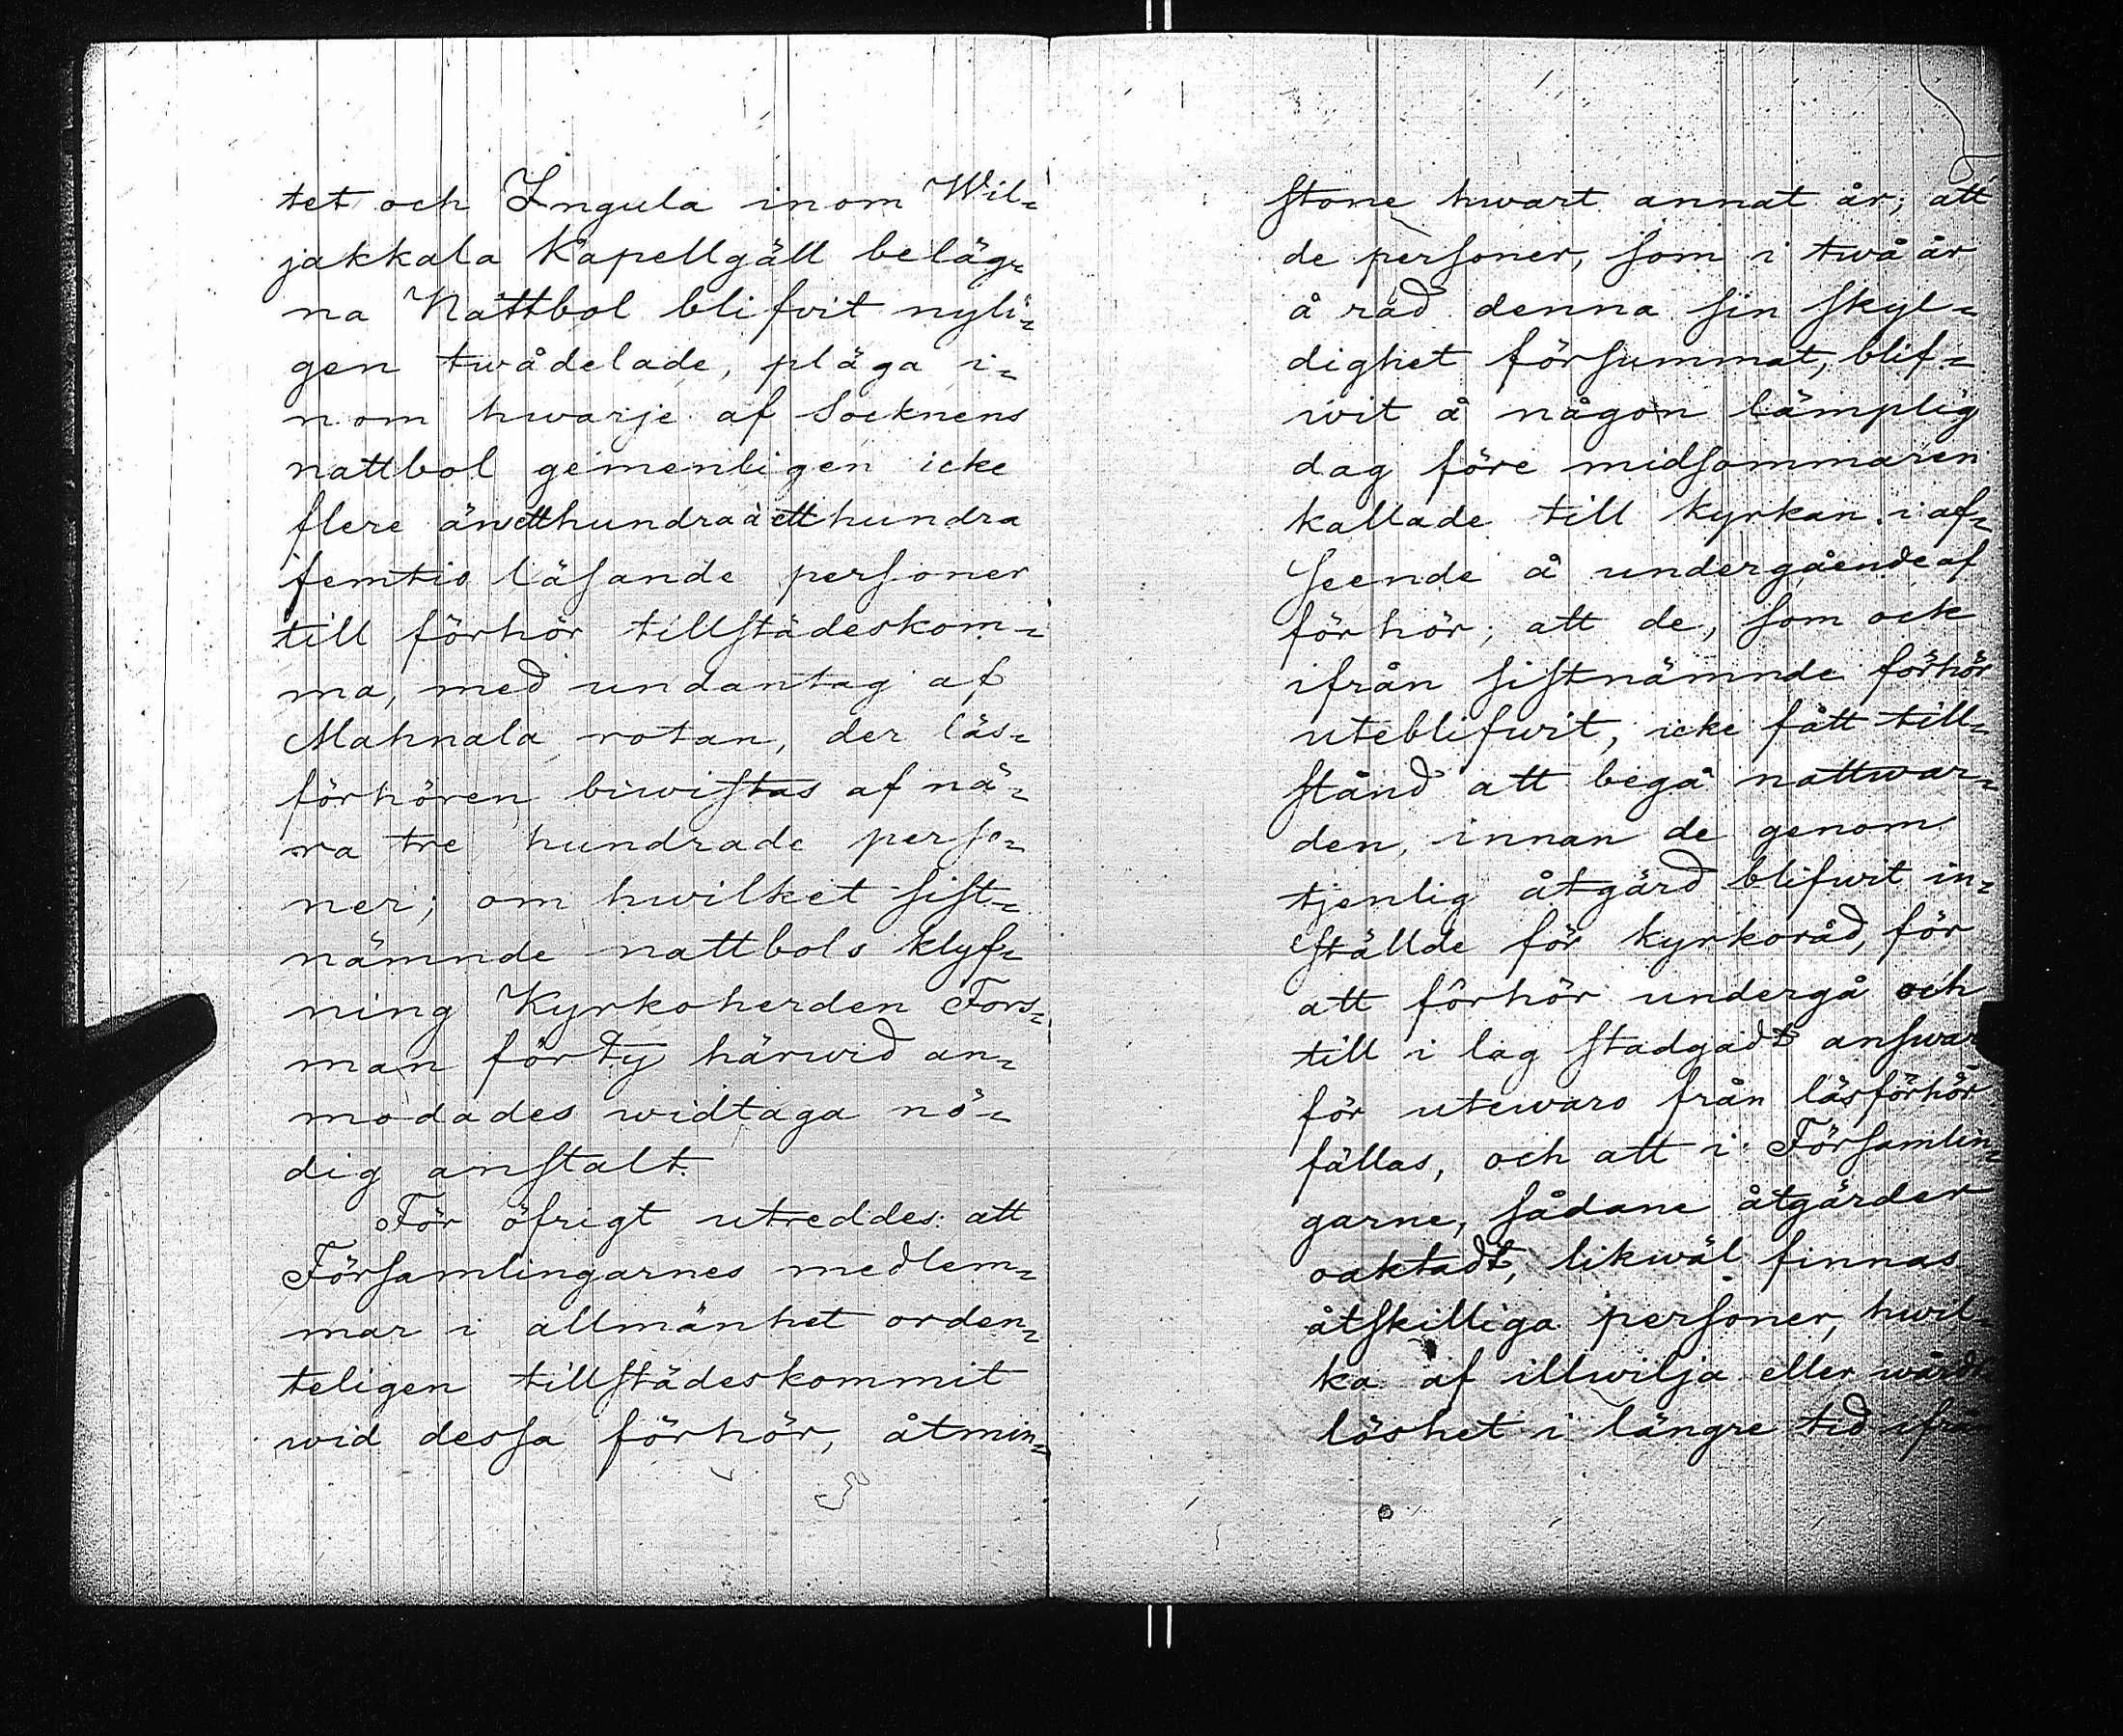 tet och Ingula inom Wil-
jakkala Kapellgäll beläg-
na Nattbol blifvit nyli-
gen twådelade, pläga i-
nom hwarje af Socknens
nattbol gemenligen icke
flere än etthundra à etthundra
femtio läsande personer
till förhör tillstädeskom-
ma, med undantag af
Mahnala rotan, der läs-
förhören biwistas af nä-
ra tre hundrade perso-
ner; om hwilket sist-
nämnde nattbols klyf-
ning Kyrkoherden Fors-
man förty härwid an-
modades widtaga nö-
dig anstalt.
För öfrigt utreddes att
Församlingarnes medlem-
mar i allmänhet orden-
teligen tillstädeskommit
wid dessa förhör, åtmin-
stone hwart annat år; att
de personer, som i twå år
å rad denna sin skyl-
dighet försummat, blif-
wit å någon lämplig
dag före midsommaren
kallade till kyrkan i af-
seende å undergående af
förhör; att de, som ock
ifrån sistnämnde förhör
uteblifwit, icke fått till-
stånd att begå nattwar-
den, innan de genom
tjenlig åtgärd blifwit in-
ställde för kyrkoråd, för
att förhör undergå och
till i lag stadgadt answar
för utewaro från läsförhör
fällas, och att i Församlin-
garne, sådane åtgärder
oaktadt, likwäl finnas
åtskilliga personer, hwil-
ka af illwilja eller wårds-
löshet i längre tid ifrån